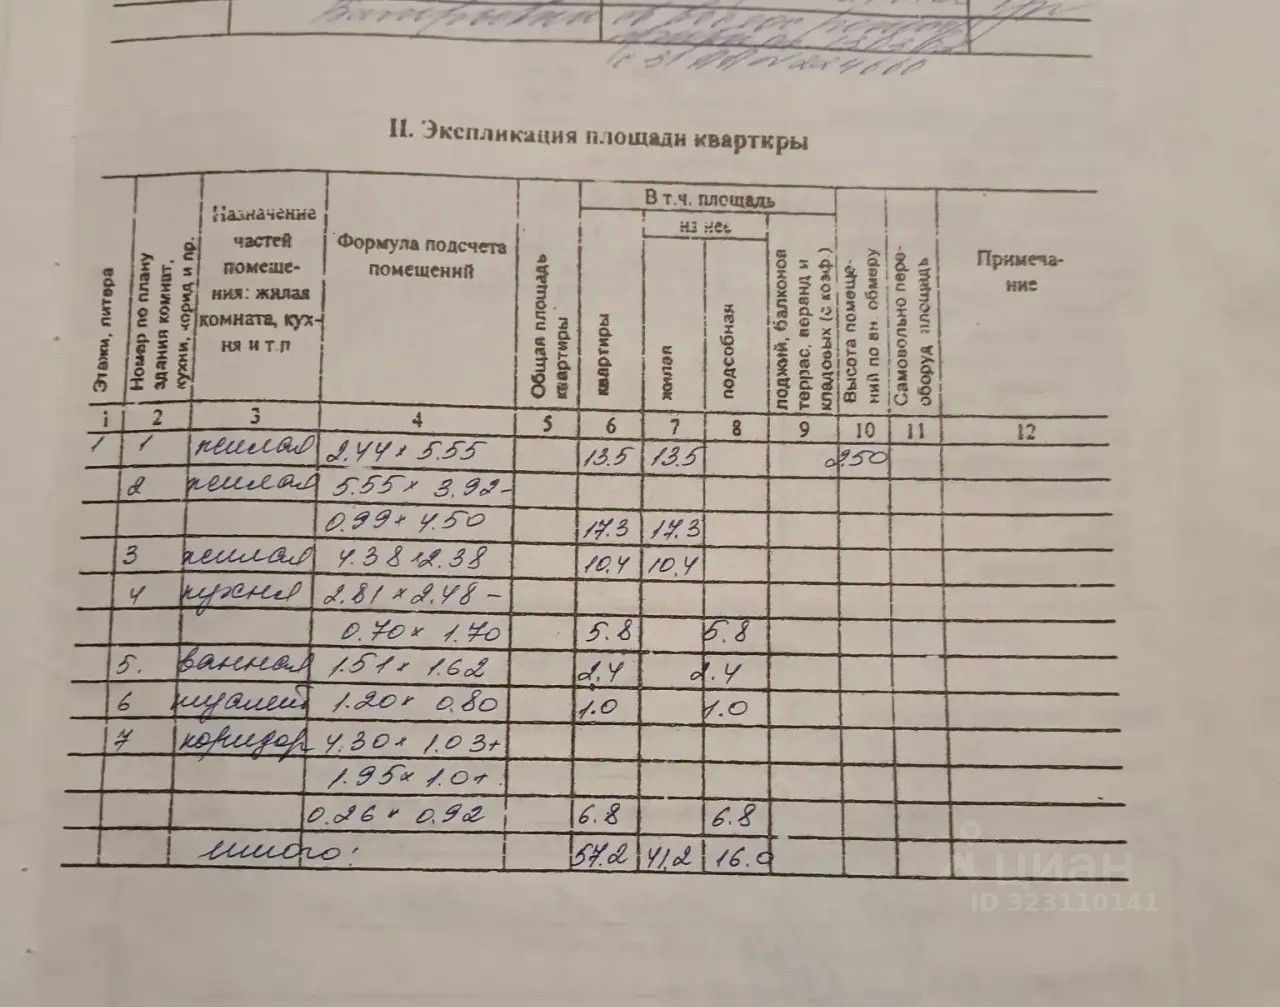 II. Экспликация площади квартиры
Этажи, литера
Номер по плану здания комнат, кухни, корид и пр.
Назначение частей помеще-ния: жилая комната, кух-ня и т.п
Формула подсчета помещений
Общая площадь квартиры
В т.ч. площадь
из нее
квартиры
жилая
подсобная
лоджий, балконов террас, веранд и кладовых (с коэф.)
Высота помеще-ний по вн. обмеру
Самовольно пере-оборуд площадь
Примеча-ние
1 2 3 4 5 6 7 8 9 10 11 12
1 1 жилая 2.44 × 5.55 13.5 13.5 250
2 жилая 5.55 × 3.92 -
0.99 × 4.50 17.3 17.3
3 жилая 4.38 × 2.38 10.4 10.4
4 кухня 2.81 × 2.48 -
0.70 × 1.70 5.8 5.8
5. ванная 1.51 × 1.62 2.4 2.4
6 туалет 1.20 × 0.80 1.0 1.0
7 коридор 4.30 × 1.03+
1.95 × 1.0+
0.26 × 0.92 6.8 6.8
итого: 57.2 41,2 16.0
циан
ID 323110141